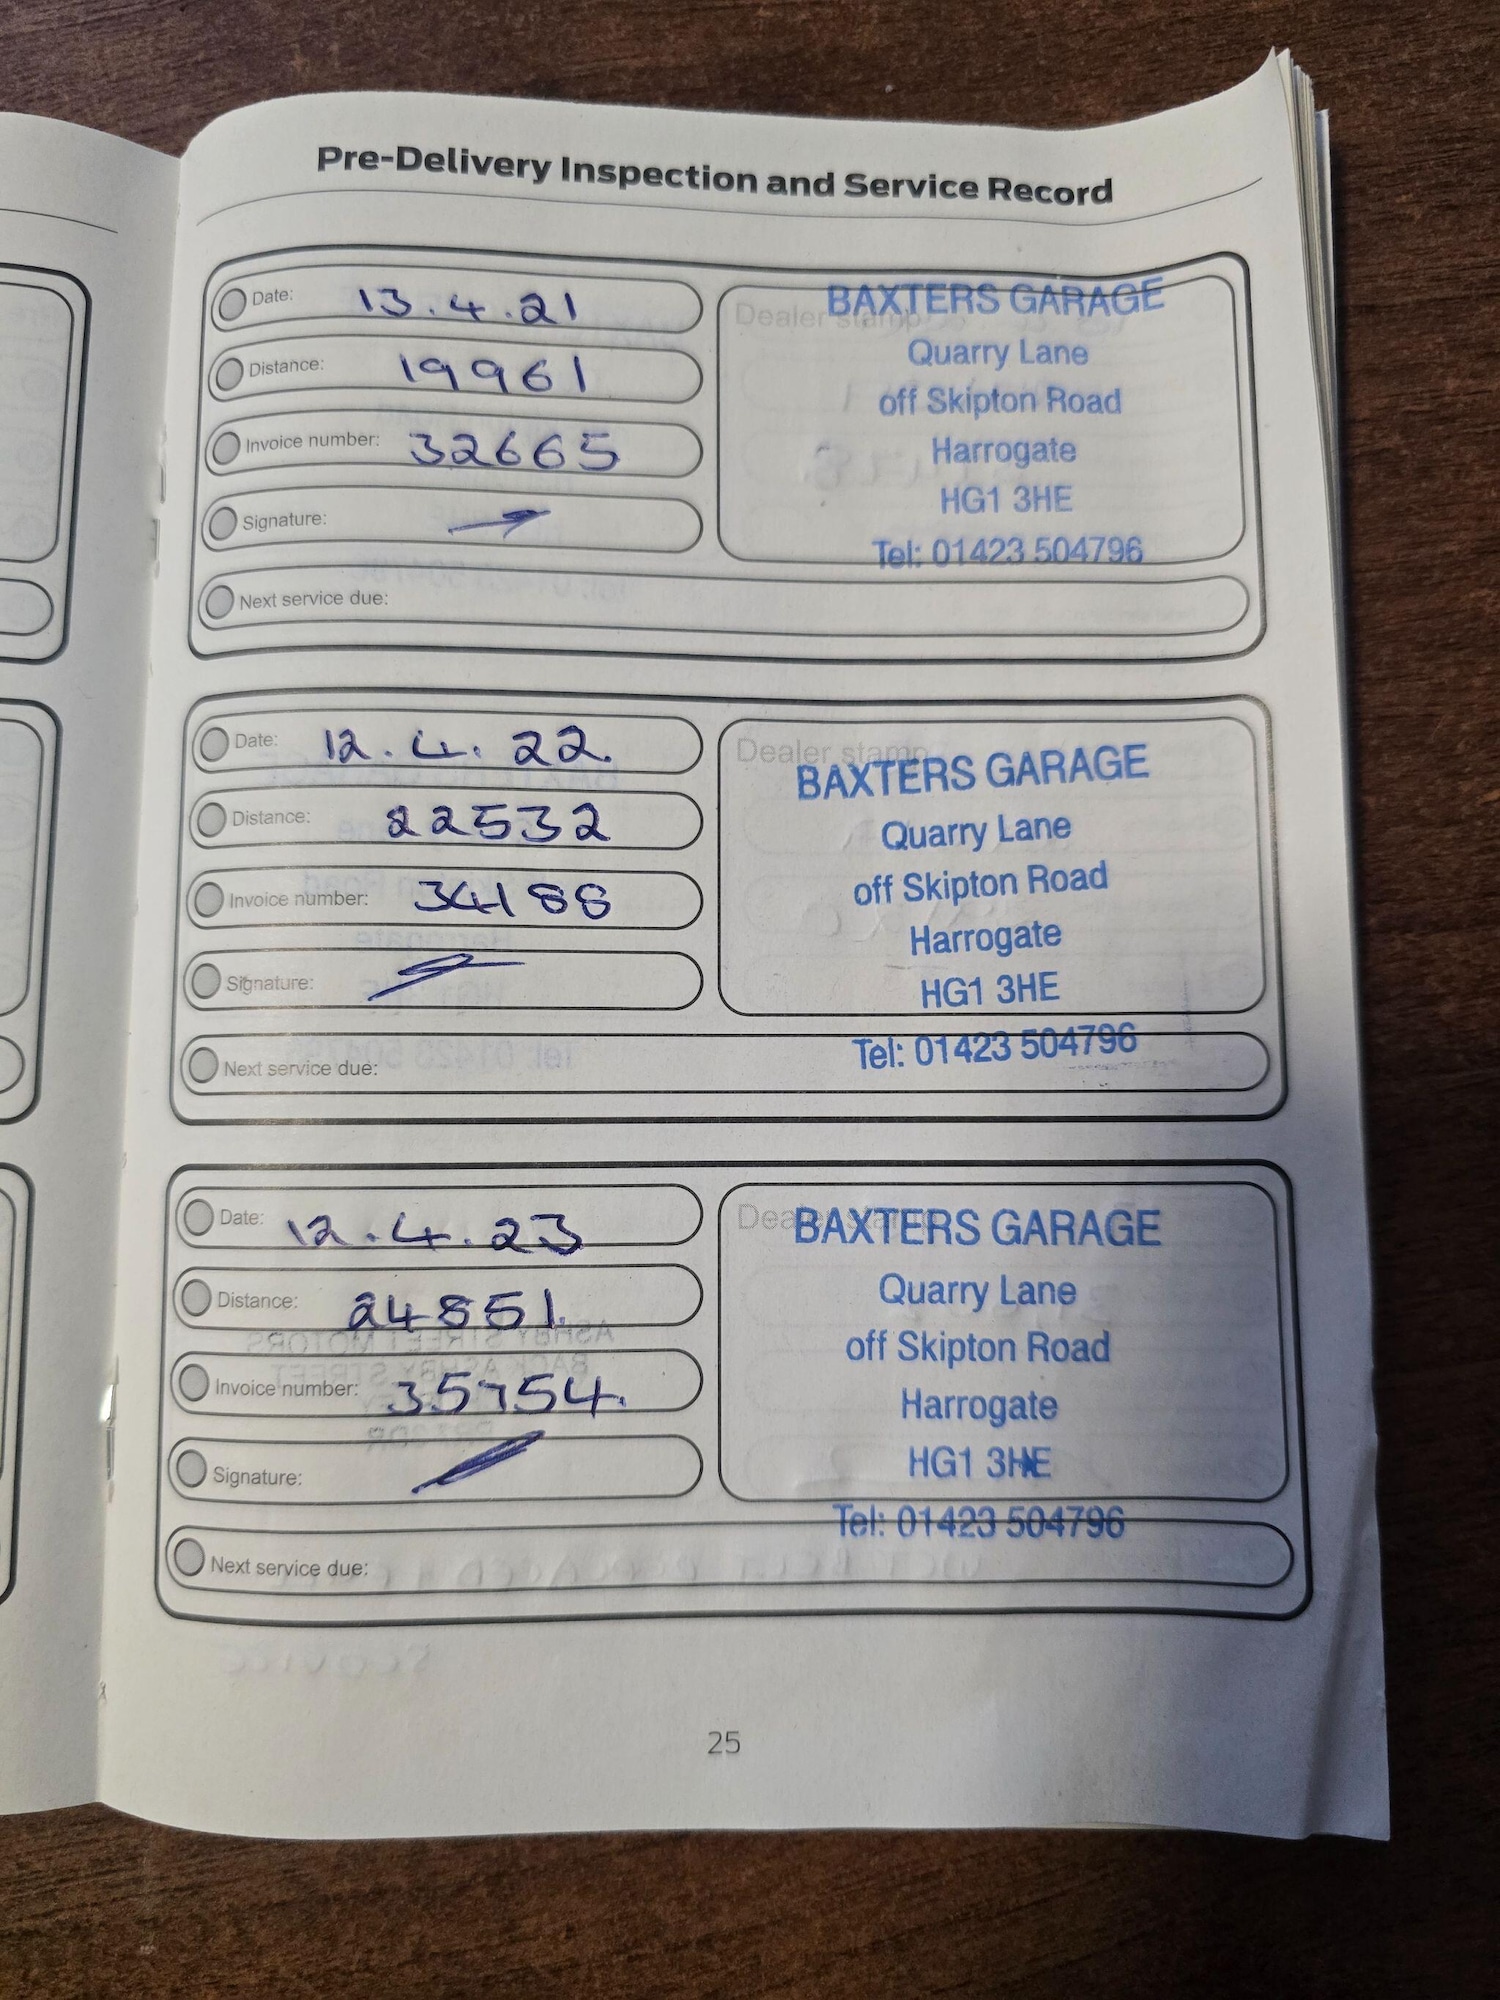 Pre-Delivery Inspection and Service Record
Date: 13.4.21
Distance: 19961
Invoice number: 32665
Signature:
Next service due:
Dealer stamp
BAXTERS GARAGE
Quarry Lane
off Skipton Road
Harrogate
HG1 3HE
Tel: 01423 504796
Date: 12.4.22.
Distance: 22532
Invoice number: 34188
Signature:
Next service due:
Dealer stamp
BAXTERS GARAGE
Quarry Lane
off Skipton Road
Harrogate
HG1 3HE
Tel: 01423 504796
Date: 12.4.23
Distance: 24851.
Invoice number: 35754.
Signature:
Next service due:
Dealer stamp
BAXTERS GARAGE
Quarry Lane
off Skipton Road
Harrogate
HG1 3HE
Tel: 01423 504796
25